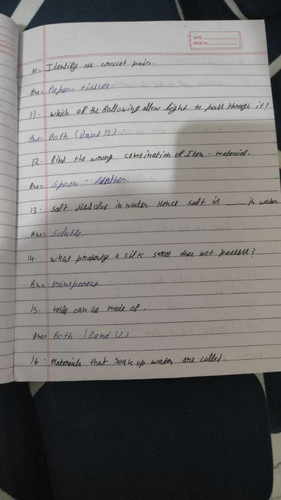 DATE
PAGE No.
10. Identify the correct pair.
Ans- Paper tissue.
11. Which of the following allow light to pass through it?
Ans- Both (1 and 2).
12. Find the wrong combination of item - material.
Ans- Spoon - Leather
13. Salt dissolve in water. Hence salt is ___ in water
Ans- Soluble
14. What property a silk saree does not possess?
Ans-
15. can be made of.
Ans- Both (1 and 2)
16. Materials that soak up water are called.